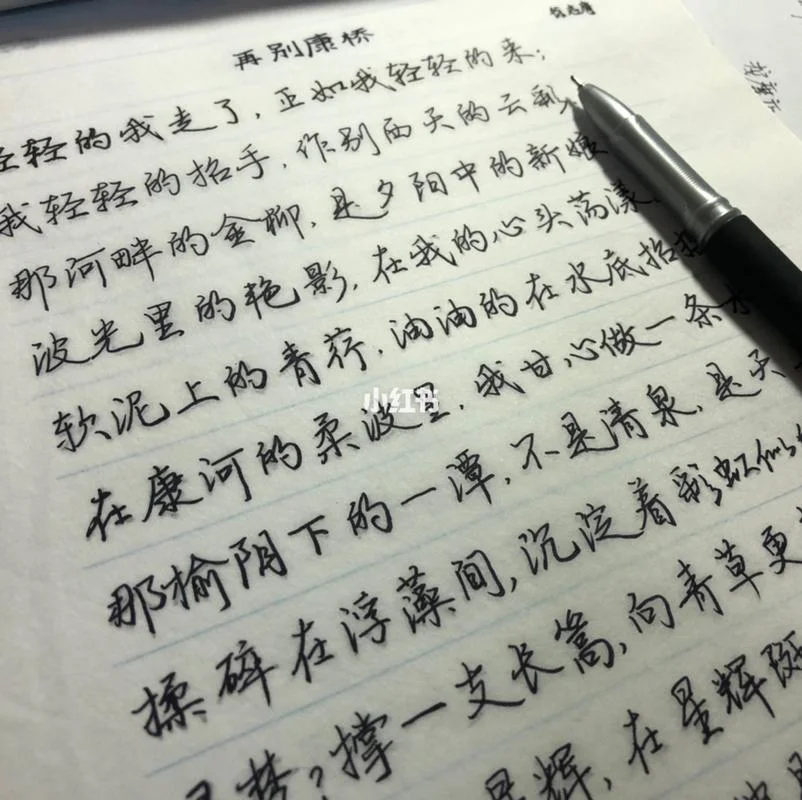 再别康桥
徐志摩
轻轻的我走了，正如我轻轻的来；
我轻轻的招手，作别西天的云彩
那河畔的金柳，是夕阳中的新娘
波光里的艳影，在我的心头荡漾。
软泥上的青荇，油油的在水底招摇
在康河的柔波里，我甘心做一条水
那榆阴下的一潭，不是清泉，是天
揉碎在浮藻间，沉淀着彩虹似的
梦？撑一支长篙，向青草更
星辉，在星辉斑
小红书